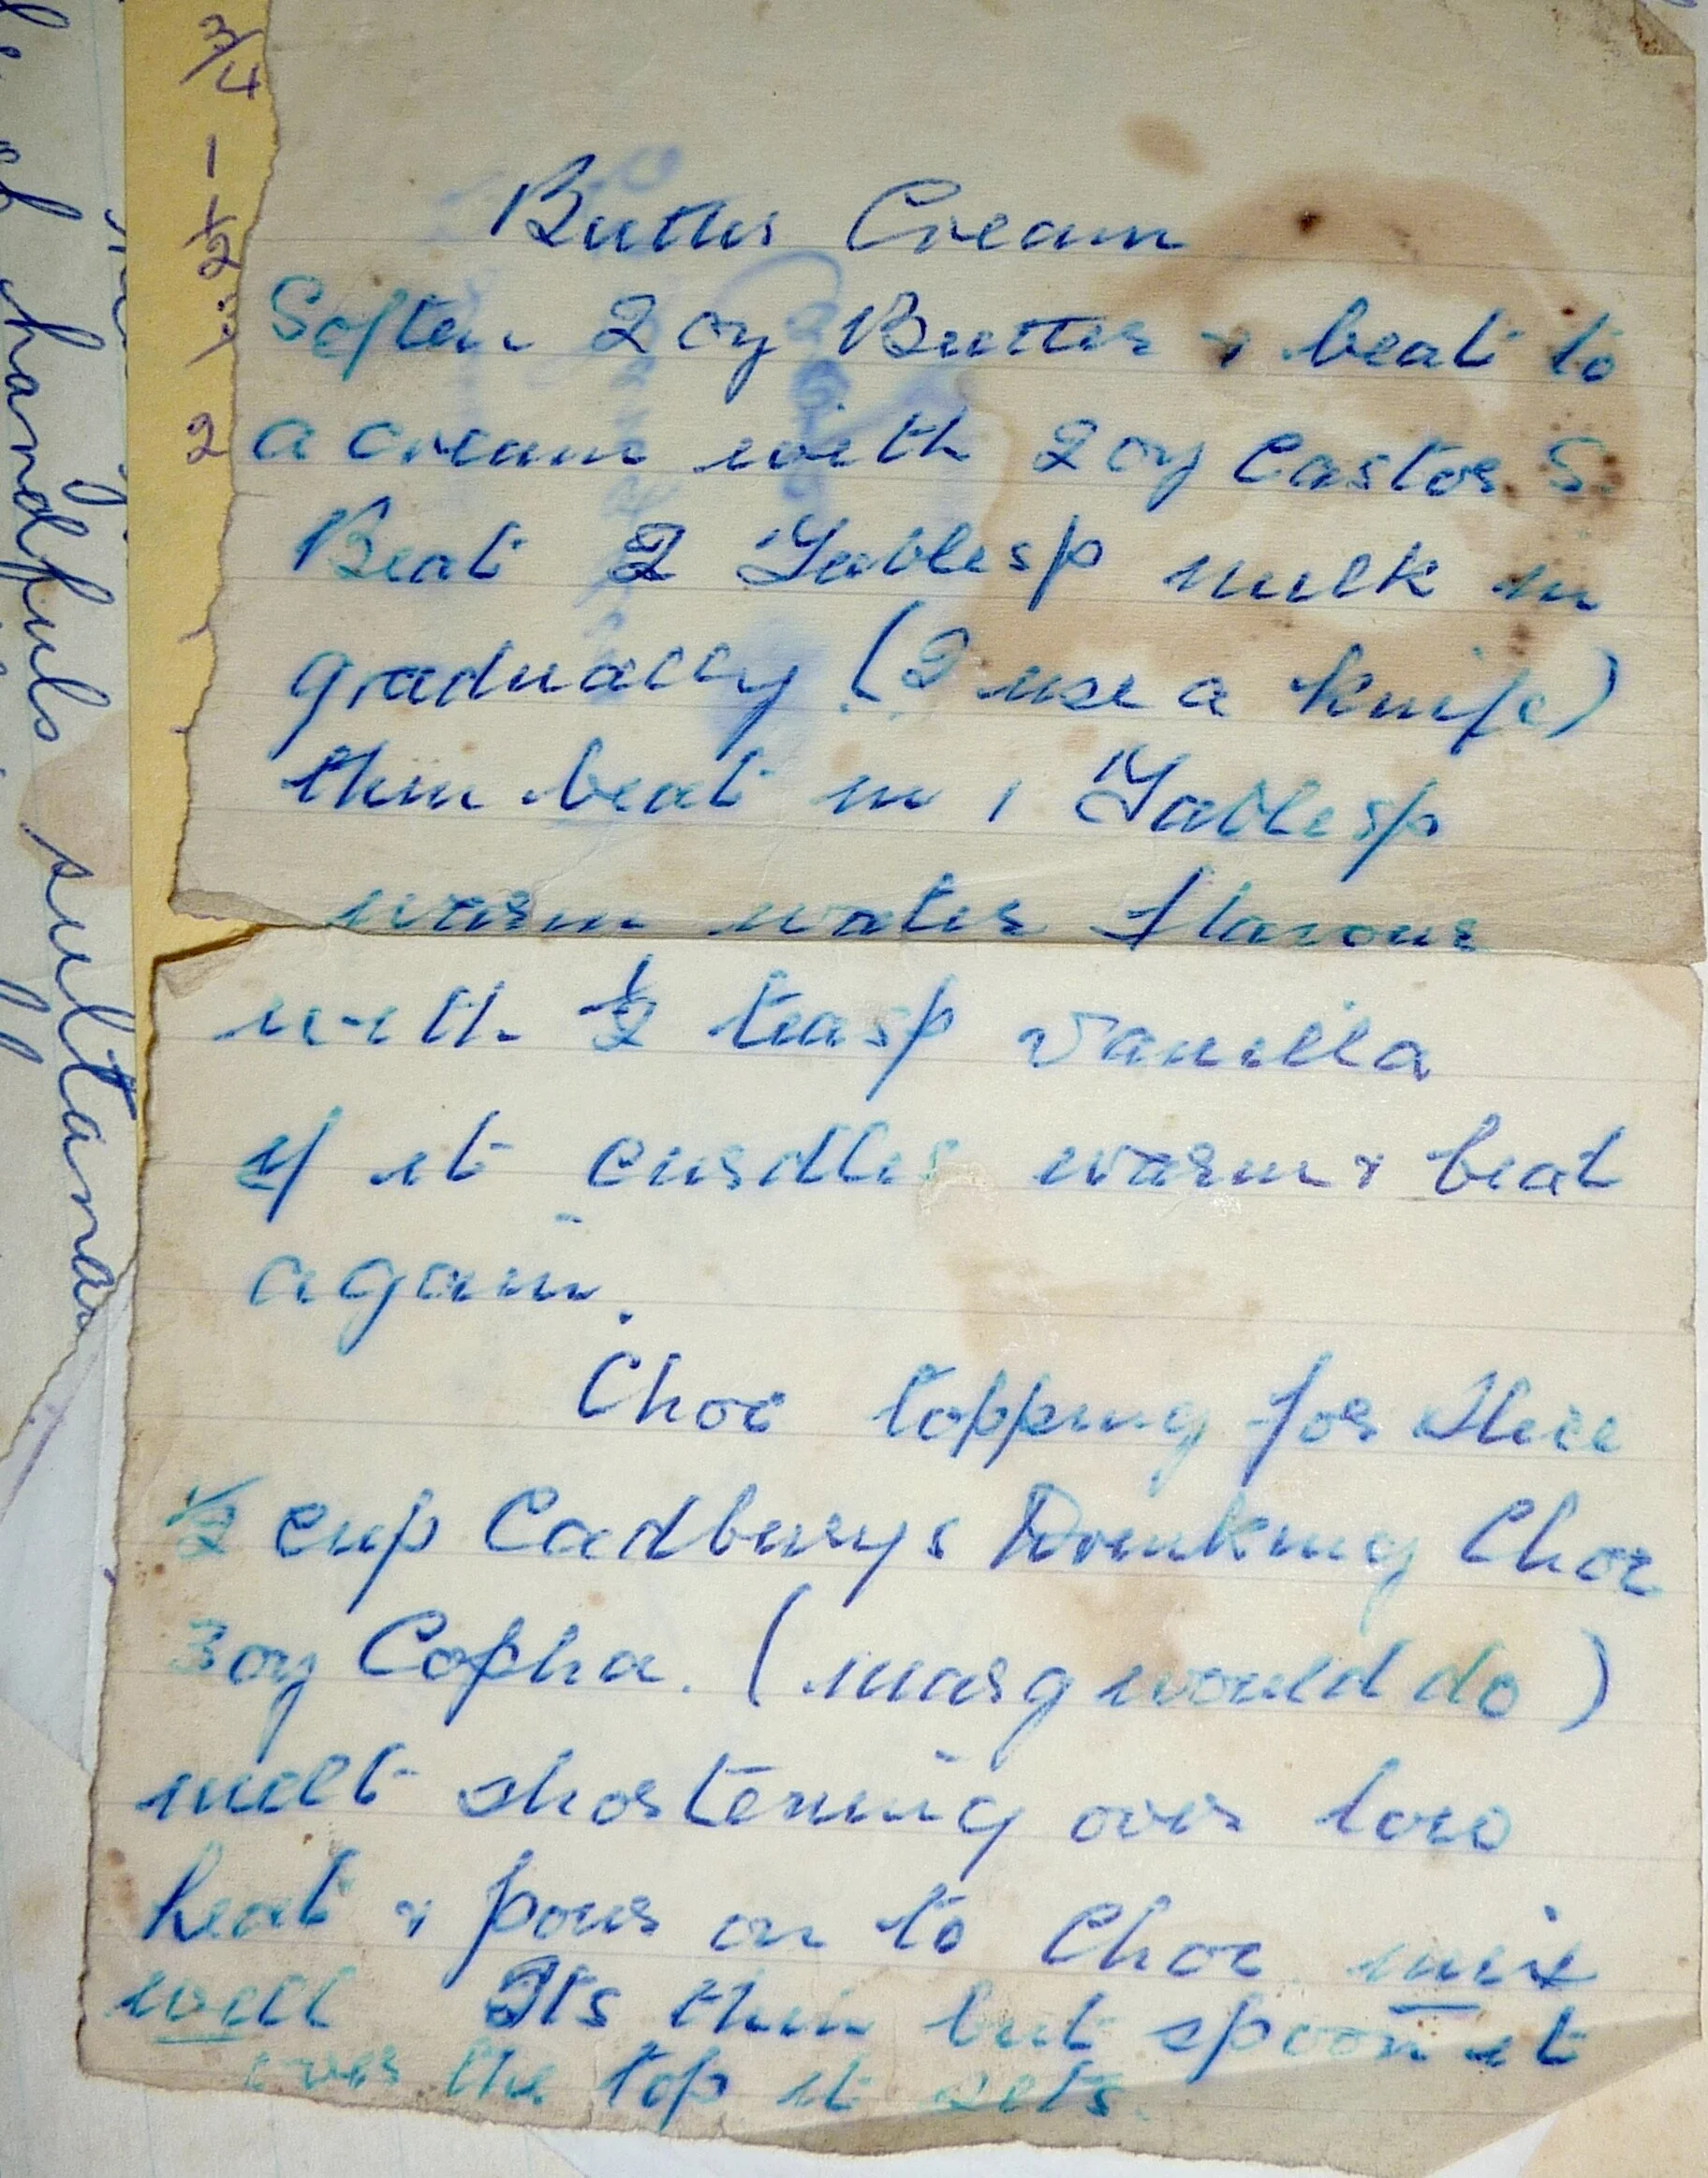 Butter Cream
Soften 2 oz Butter & beat to
a cream with 2 oz Castor S.
Beat 2 Tablesp milk in
gradually (I use a knife)
then beat in 1 Tablesp
warm water flavour
with ½ teasp vanilla
if it curdles warm & beat
again.
Choc topping for slice
½ cup Cadburys Drinking Choc
3 oz Copha. (marg would do)
melt shortening over low
heat & pour on to Choc mix
well Its thin but spoon it
over the top it sets.
3/4
1
½
2
handfuls sultanas